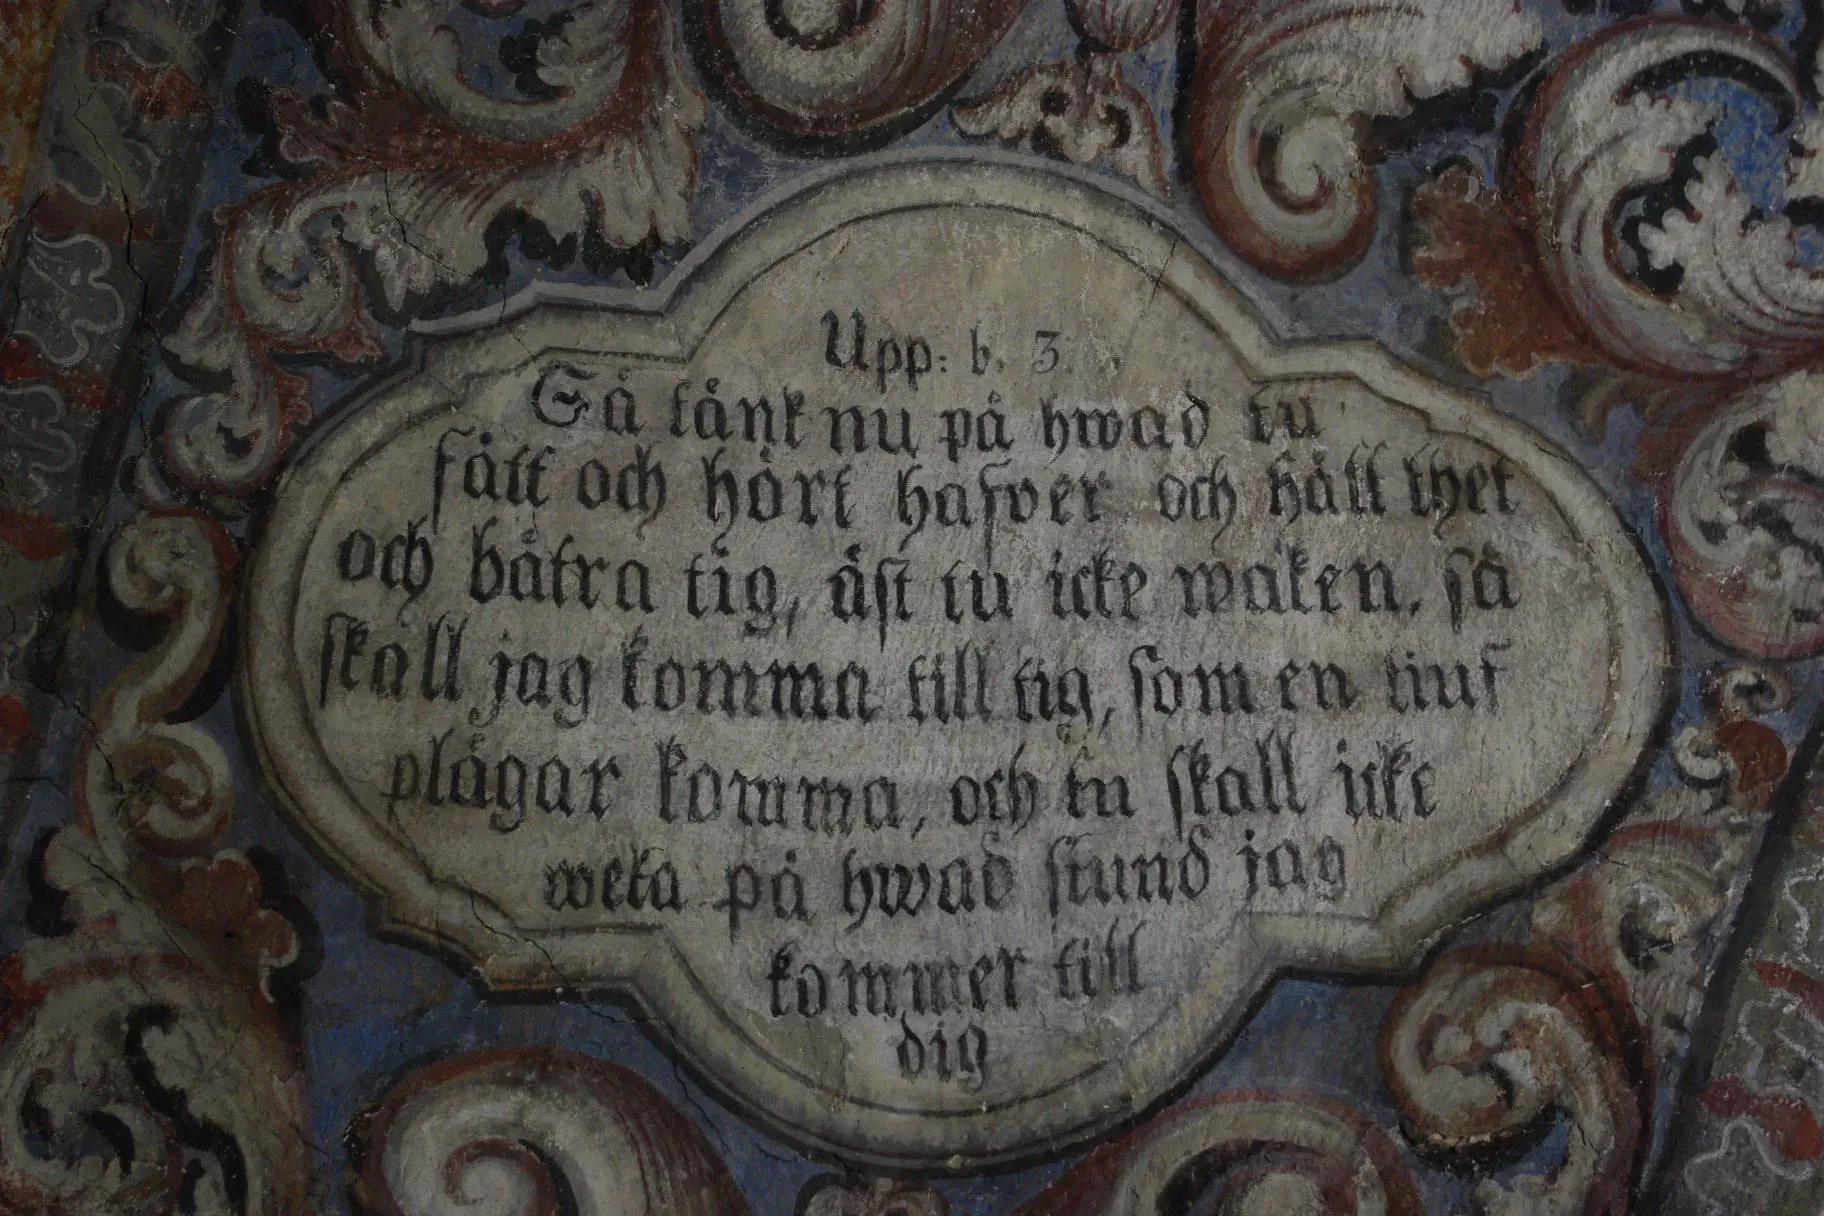 Upp: b. 3.
Så tänk nu på hwad tu
fått och hört hafver och hått thet
och båtra tig, äst tu icke waken, så
skall jag komma till tig, som en tiuf
plågar komma, och tu skall icke
weta på hwad stund jag
kommer till
dig